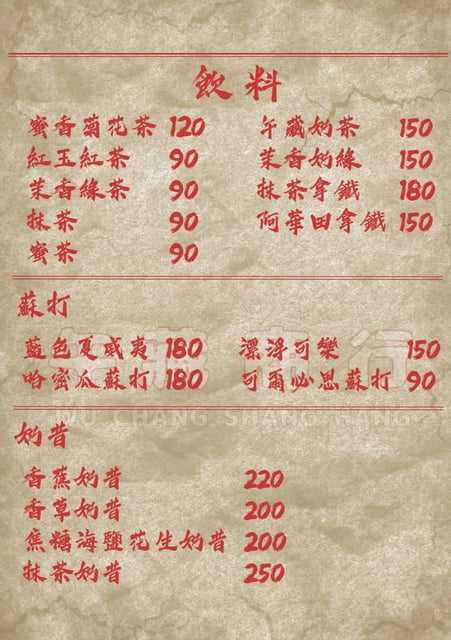 飲料
蜜香菊花茶 120
紅玉紅茶 90
茉香綠茶 90
抹茶 90
蜜茶 90
午藏奶茶 150
茉香奶綠 150
抹茶拿鐵 180
阿華田拿鐵 150
蘇打
藍色夏威夷 180
哈密瓜蘇打 180
漂浮可樂 150
可爾必思蘇打 90
WU CHANG SHANG HANG
奶昔
香蕉奶昔 220
香草奶昔 200
焦糖海鹽花生奶昔 200
抹茶奶昔 250